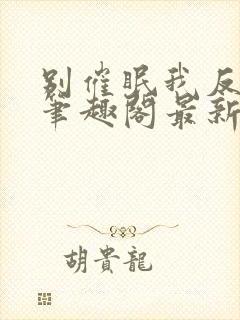 别催眠我反
笔趣阁最新
胡貴龍